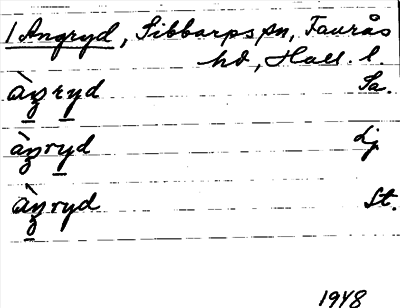 1 Angryd, Sibbarps sn, Faurås
hd, Hall. l.
àŋryd Sa.
àŋryd Lj
àŋryd St.
1948